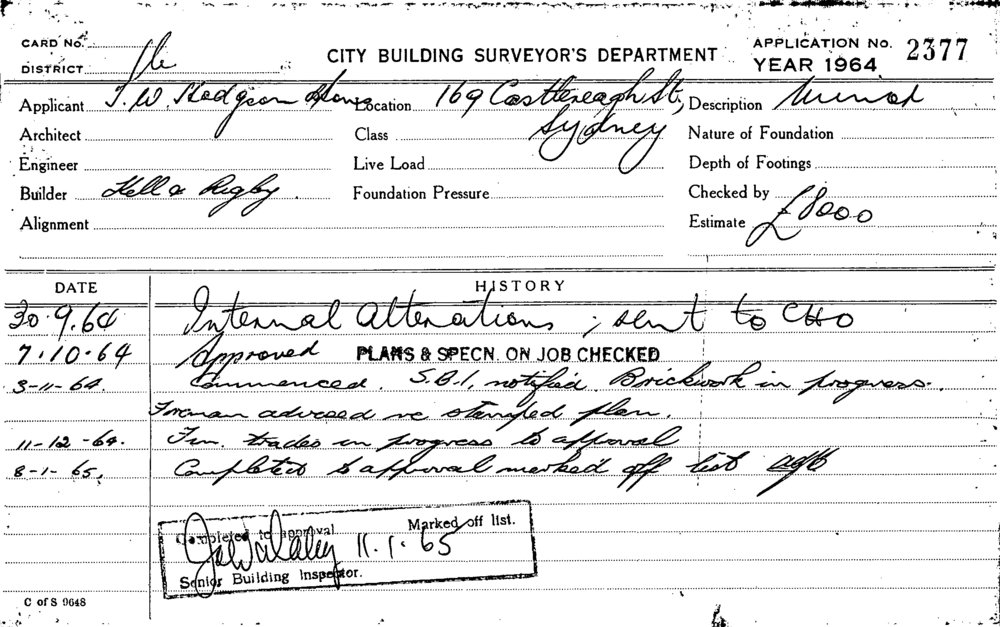 CARD No.
DISTRICT
CITY BUILDING SURVEYOR'S DEPARTMENT
APPLICATION No. 2377
YEAR 1964
Applicant T. W. Hodgson
Location 169 Castlereagh St, Sydney
Description Minor
Architect
Class
Nature of Foundation
Engineer
Live Load
Depth of Footings
Builder Kell & Rigby
Foundation Pressure
Checked by
Alignment
Estimate £8000
DATE HISTORY
30.9.64 Internal Alterations ; sent to CHO
7.10.64 Approved PLANS & SPECN. ON JOB CHECKED
3-11-64. Commenced. S.B.I, notified. Brickwork in progress.
Foreman advised re stamped plan.
11-12-64. Fin. trades in progress to approval
8-1-65. Completed to approval marked off list
Completed to approval Marked off list.
11.1.65
Senior Building Inspector.
C of S 9648